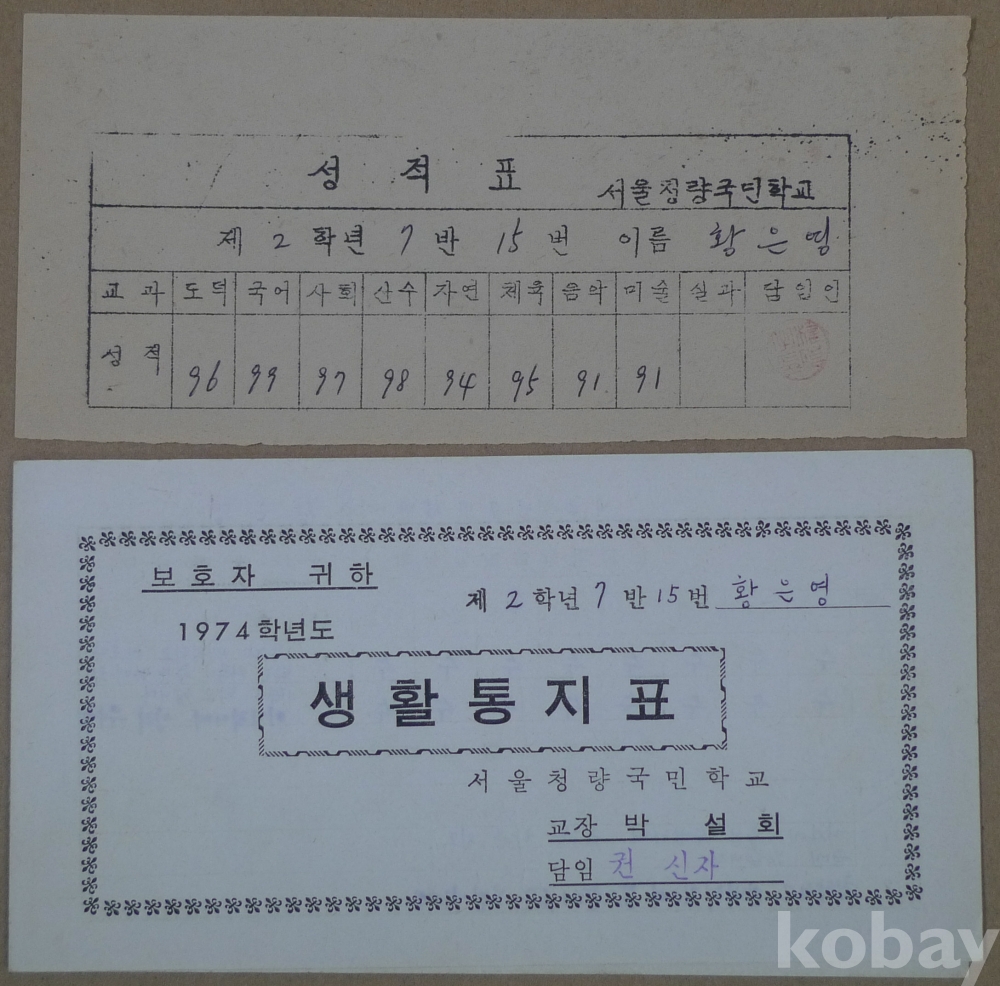 성 적 표 서울청량국민학교
제 2 학년 7 반 15 번 이름 황은영
교과 도덕 국어 사회 산수 자연 체육 음악 미술 실과 담임인
성적 96 99 97 98 94 95 91 91
보호자 귀하
제 2 학년 7 반 15 번 황은영
1974학년도
생활통지표
서울청량국민학교
교장 박 설 회
담임 권 신자
kobay